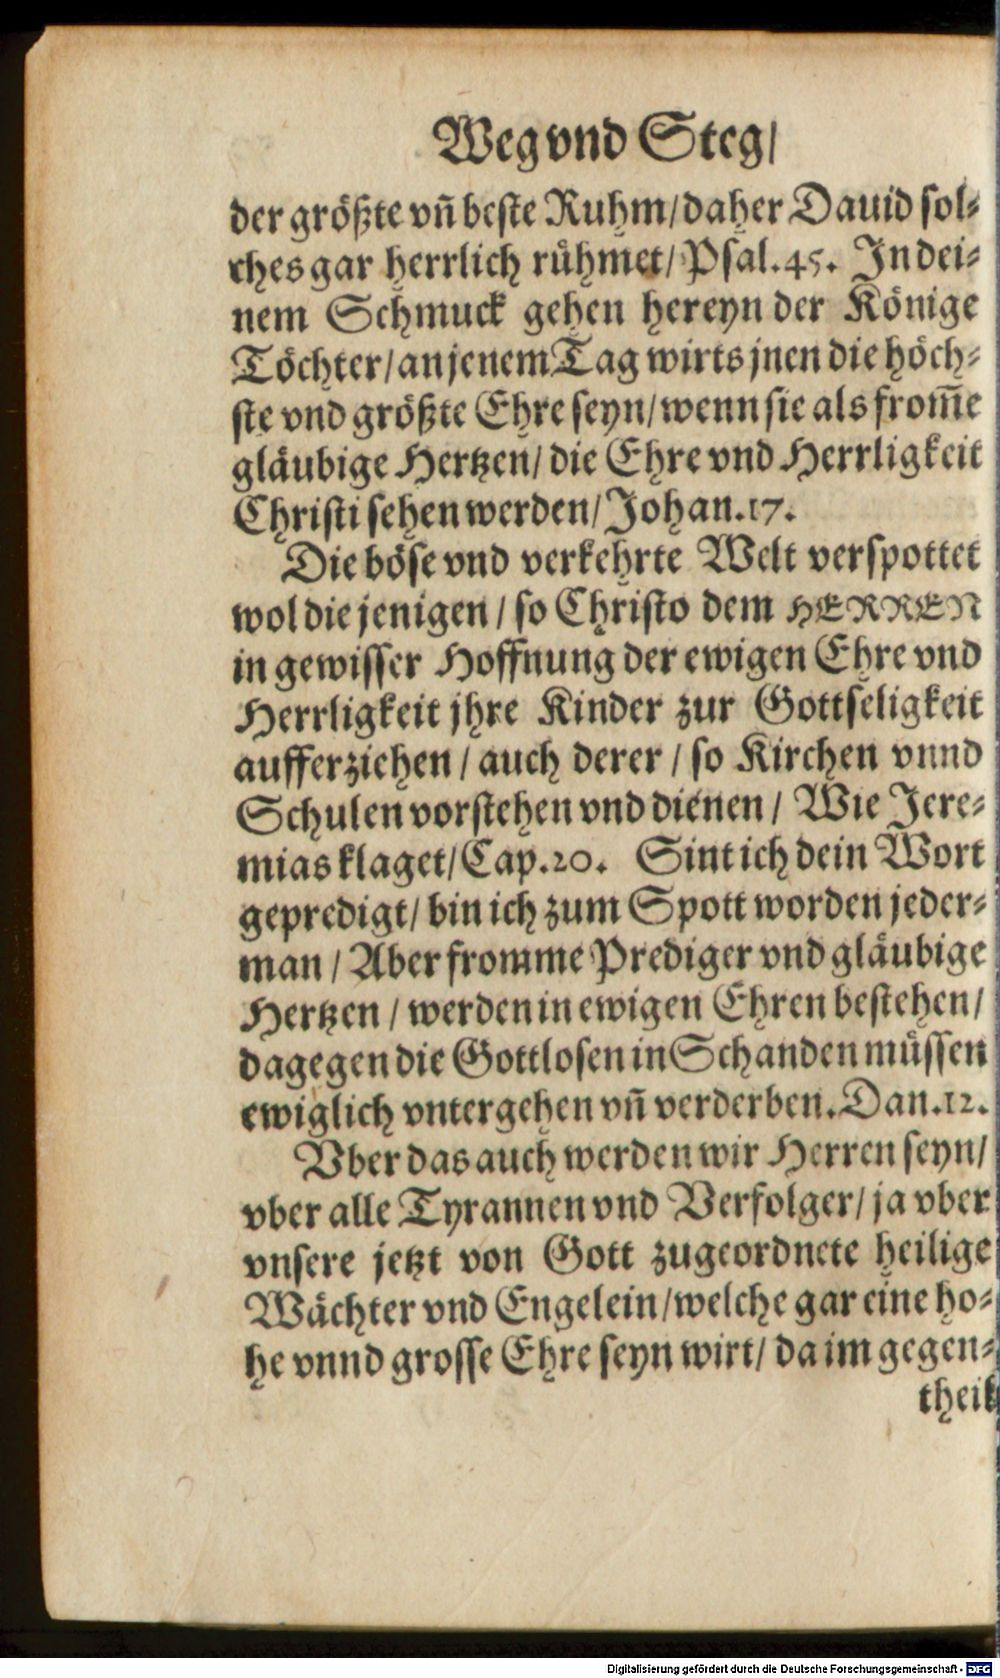 Weg vnd Steg/
der größte vñ beste Ruhm/ daher Dauid sol-
ches gar herrlich rühmet/ Psal.45. In dei-
nem Schmuck gehen hereyn der Könige
Töchter/ an jenem Tag wirts jnen die höch-
ste vnd größte Ehre seyn/ wenn sie als from̃e
gläubige Hertzen/ die Ehre vnd Herrligkeit
Christi sehen werden/ Johan.17.
Die böse vnd verkehrte Welt verspottet
wol die jenigen / so Christo dem HERREN
in gewisser Hoffnung der ewigen Ehre vnd
Herrligkeit jhre Kinder zur Gottseligkeit
aufferziehen / auch derer / so Kirchen vnnd
Schulen vorstehen vnd dienen / Wie Jere-
mias klaget/ Cap.20. Sint ich dein Wort
gepredigt/ bin ich zum Spott worden jeder-
man / Aber fromme Prediger vnd gläubige
Hertzen / werden in ewigen Ehren bestehen/
dagegen die Gottlosen in Schanden müssen
ewiglich vntergehen vñ verderben. Dan.12.
Vber das auch werden wir Herren seyn/
vber alle Tyrannen vnd Verfolger/ ja vber
vnsere jetzt von Gott zugeordnete heilige
Wächter vnd Engelein/ welche gar eine ho-
he vnnd grosse Ehre seyn wirt/ da im gegen-
theil
Digitalisierung gefördert durch die Deutsche Forschungsgemeinschaft - DFG